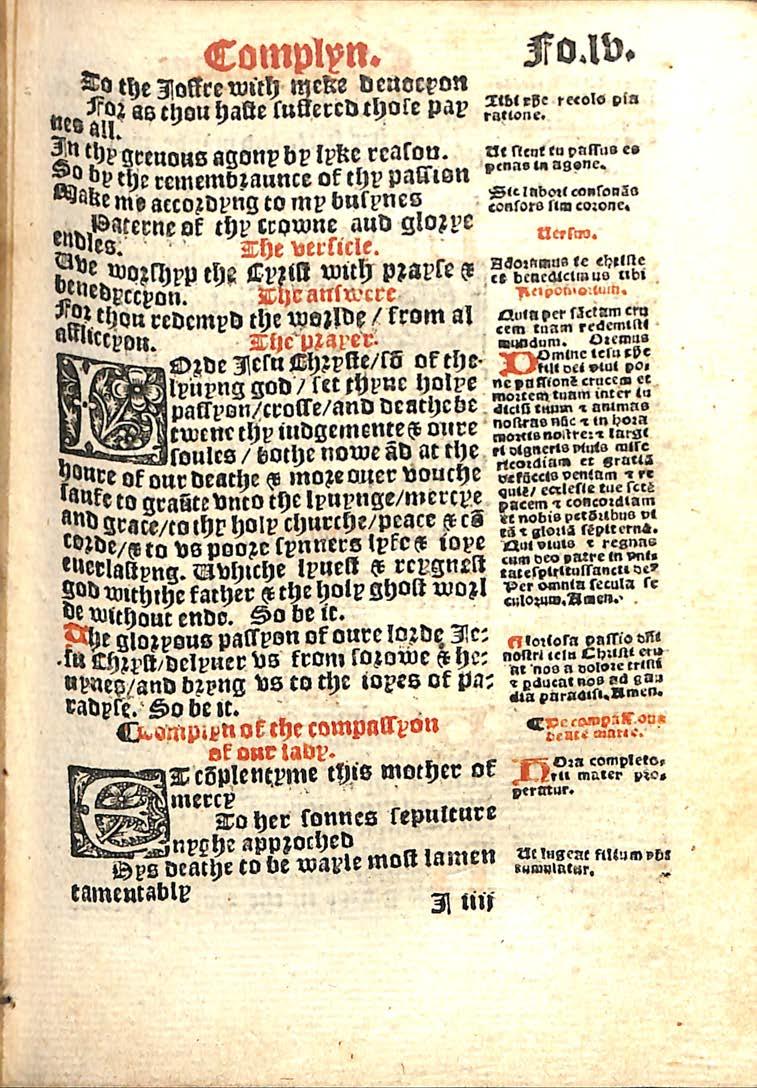 Complyn. Fo.lv.
To the Joffre with meke deuocyon
For as thou haste suffered those pay
nes all.
In thy greuous agony by lyke reason.
So by the remembraunce of thy passion
Make me accordyng to my busynes
Paterne of thy crowne aud glorye
endles.
The versicle.
Uve worshyp the Cyrist with prayse &
benedyccyon.
The answere
For thou redemyd the worlde / from al
affliccyon.
The prayer.
LOrde Jesu Chryste/sō of the-
lyuyng god / set thyne holye
passyon/crosse/and deathe be
twene thy iudgemente & oure
soules / bothe nowe ād at the
houre of our deathe & more ouer vouche
saufe to graūte vnto the lyuynge/mercye
and grace/to thy holy churche/peace & cō
corde/& to vs poore synners lyfe & ioye
euerlastyng. Uvhiche lyuest & reygnest
god withthe father & the holy ghost worl
de without ende. So be it.
The gloryous passyon of oure lorde Je-
su Chryst/delyuer vs from sorowe & he-
uynes/and bryng vs to the ioyes of pa-
radyse. So be it.
Complyn of the compassyon
of our lady.
At cōplentyme this mother of
mercy
To her sonnes sepulture
nyghe approched
Hys deathe to be wayle most lamen
tamentably
J iiij
Tibi xp̄e recolo pia
ratione.
Ut sicut tu passus es
penas in agone.
Sic labori consonās
consors sim corone.
Uersus.
Adoramus te christe
et benedicimus tibi
Responsorium.
Quia per sāctam cru
cem tuam redemisti
mundum. Oremus
DOmine iesu xp̄e
fili dei viui po-
ne passionē crucem et
mortem tuam inter iu
diciū tuum & animas
nostras nūc & in hora
mortis nostre: & largi
ri digneris viuis mise
ricordiam et gratiā
defūctis veniam & re
quiē/ ecclesie tue sctē
pacem & concordiam
et nobis petōribus vi
tā & gloriā sēpiternā.
Qui viuis & regnas
cum deo patre in vni-
tatespiritussancti de9
Per omnia secula se
culorum. Amen.
Gloriosa passio dn̄i
nostri iesu Christi eru
at nos a dolore tristi
& pducat nos ad gau
dia paradisi. Amen.
De compass. one
beate marie.
HOra completo-
rii mater pro-
peratur.
Ut lugeat filium ybi
tumulatur.